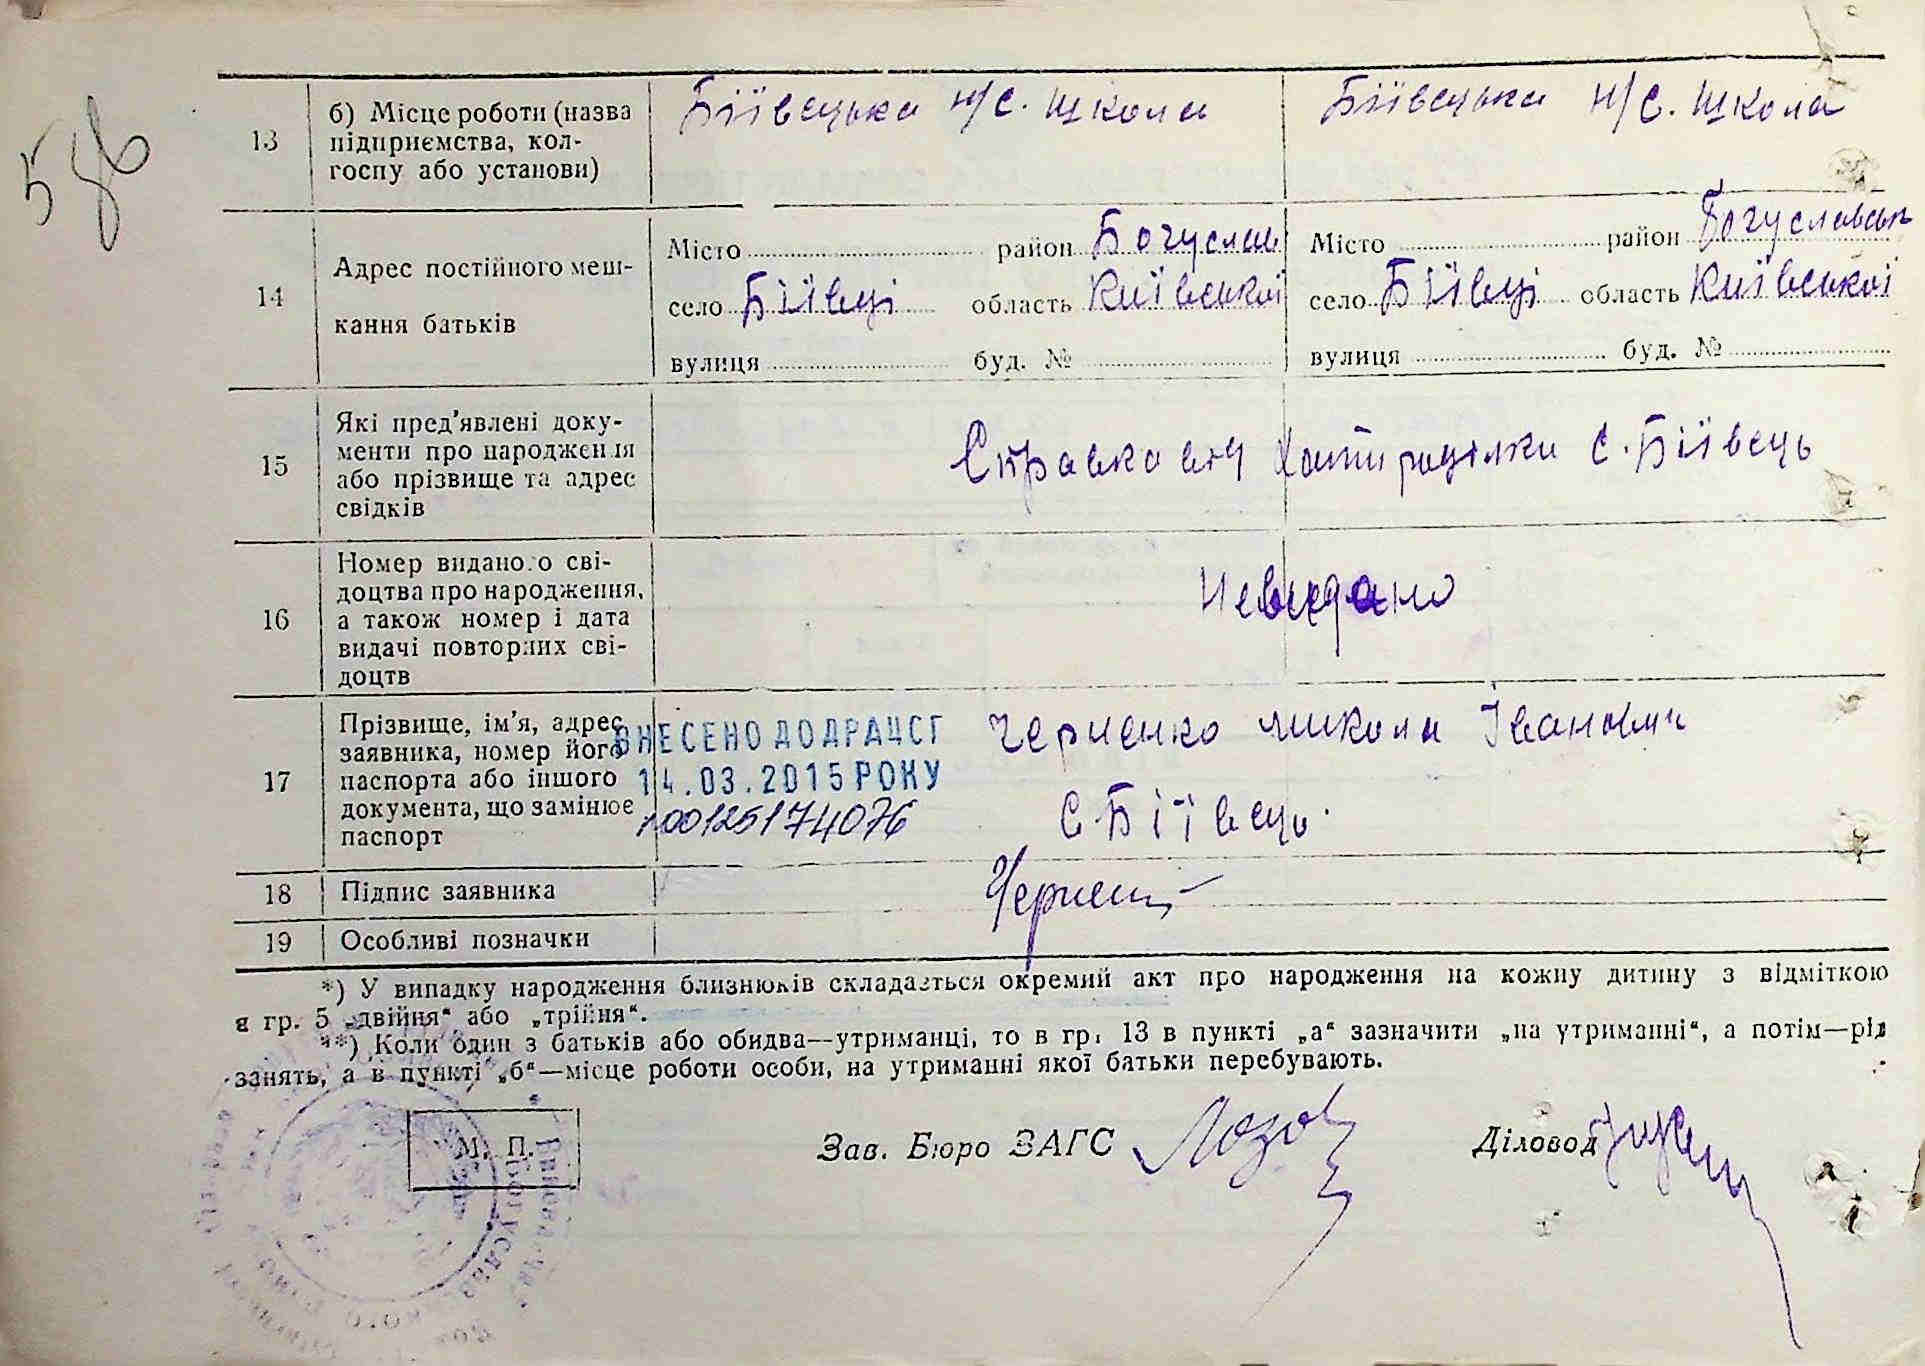 586
13
б) Місце роботи (назва
підприємства, кол-
госпу або установи)
Біївецька н/с. школа
Біївецька н/с. школа
14
Адрес постійного меш-
кання батьків
Місто район Богуслав
село Біївці область Київської
вулиця буд. №
Місто район Богуславськ
село Біївці область Київської
вулиця буд. №
15
Які пред'явлені доку-
менти про народження
або прізвище та адрес
свідків
Справка від Хатироділки с. Біївець
16
Номер виданого сві-
доцтва про народження,
а також номер і дата
видачі повторних сві-
доцтв
Невидано
17
Прізвище, ім'я, адрес
заявника, номер його
паспорта або іншого
документа, що замінює
паспорт
ВНЕСЕНО ДО ДРАЦСГ
14.03.2015 РОКУ
1 00125174076
Черненко Микола Іванович
с. Біївець.
18
Підпис заявника
19
Особливі позначки
*) У випадку народження близнюків складається окремий акт про народження на кожну дитину з відміткою
в гр. 5 „двійня“ або „трійня“.
**) Коли один з батьків або обидва—утриманці, то в гр. 13 в пункті „а“ зазначити „на утриманні“, а потім—рід
занять, а в пункті „б“—місце роботи особи, на утриманні якої батьки перебувають.
М. П.
Зав. Бюро ЗАГС
Діловод